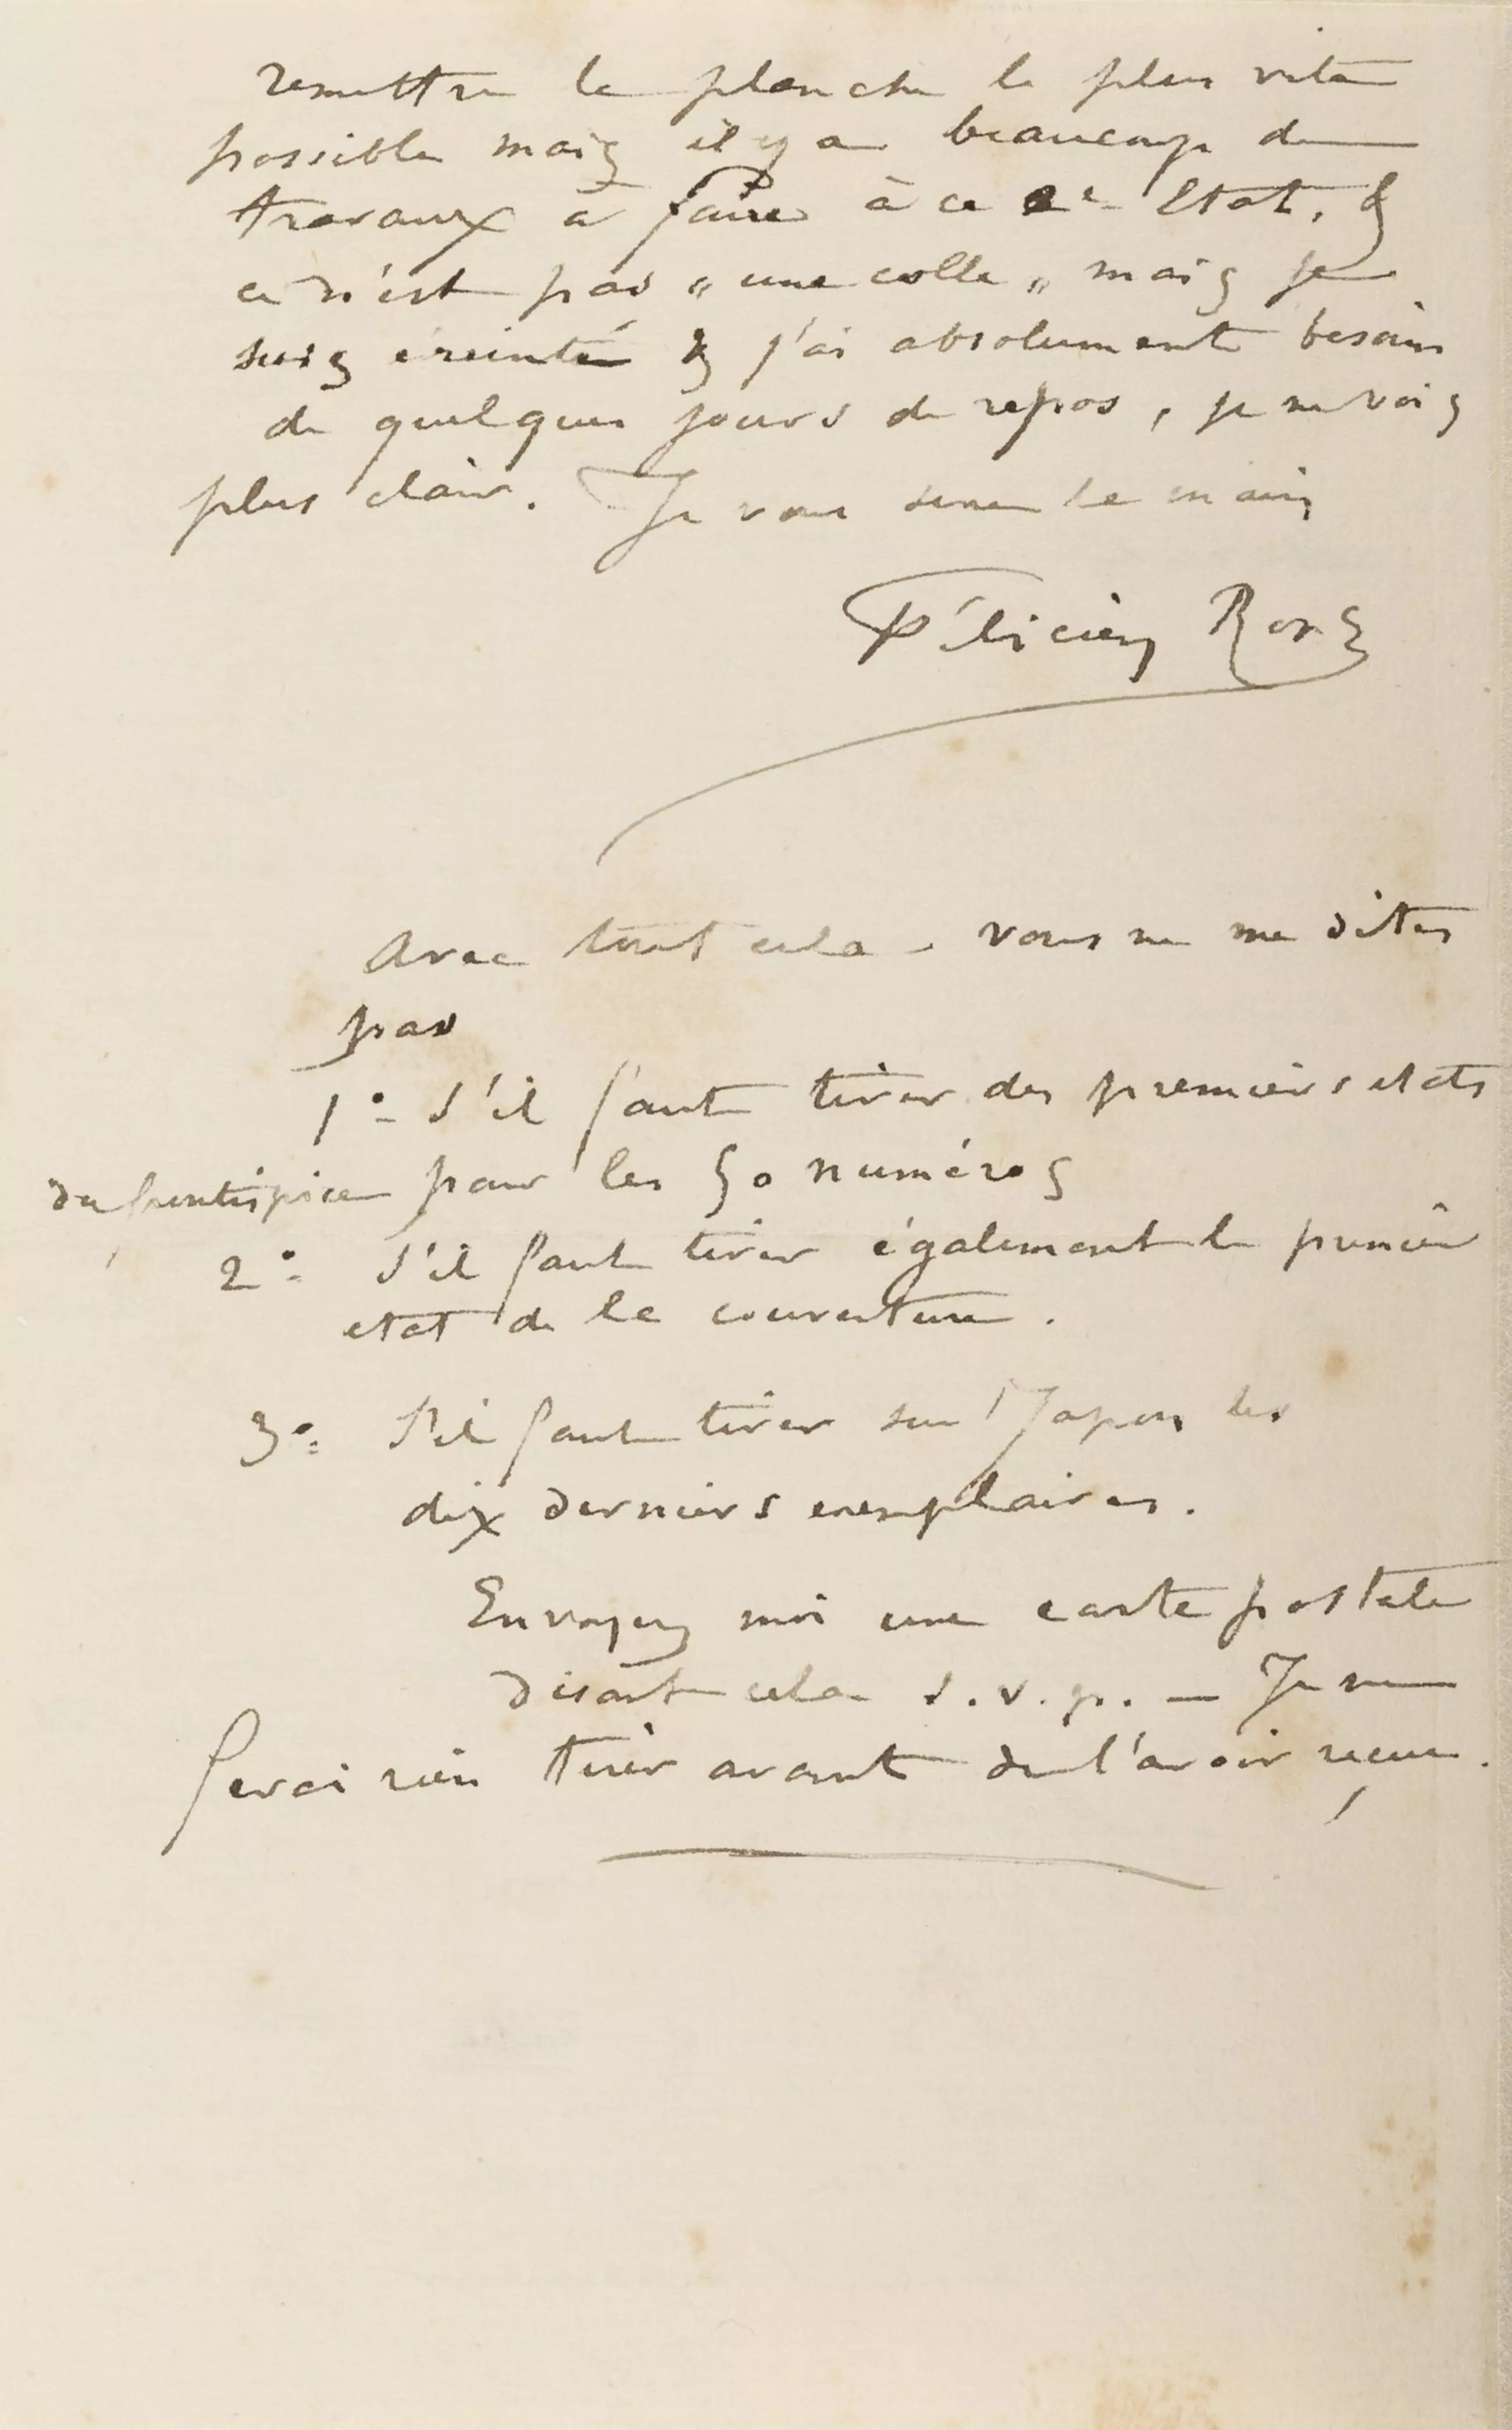 remettre la planche le plus vite
possible mais il y a beaucoup de
travaux à faire à ce 2e Etat, &
ce n'est pas " une colle " mais je
suis éreinté & j'ai absolument besoin
de quelques jours de repos, je ne vois
plus clair. Je vous serre la main
Félicien Rops
Avec tout cela - vous ne me dites
pas
1° S'il faut tirer des premiers etats
du frontispice pour les 50 numéros
2° S'il faut tirer également le premier
etat de la couverture.
3° S'il faut tirer sur Japon les
dix derniers exemplaires.
Envoyez moi une carte postale
disant cela s.v.p. — Je ne
ferai rien tirer avant de l'avoir reçue.